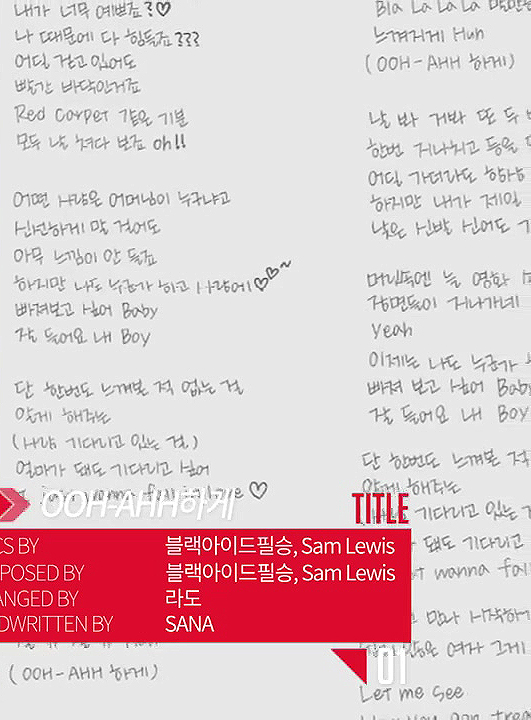 내가 너무 예쁘죠?♡
나 때문에 다 힘들죠???
어딜 걷고 있어도
빨간 바닥인거죠
Red Carpet 같은 기분
모두 날 쳐다 보죠 oh!!
어떤 사람은 어머님이 누구냐고
신선하게 말 걸어도
아무 느낌이 안 들죠
하지만 나도 누군가 하고 사랑에♡♡~
빠져보고 싶어 Baby
잘 들어요 내 Boy
단 한번도 느껴본 적 없는 걸
알게 해주는
(사람 기다리고 있는 걸)
얼마가 돼도 기다리고 싶어
I just wanna fall in love ♡
(OOH-AHH 하게)
Bla La La La
느껴지게 Hun
(OOH-AHH 하게)
날 봐 거봐 또 두 번
한번 지나치고 등을
어딜 가더라도 항상
하지만 내가 제일
낮은 신발 신어도
머릿속엔 늘 영화
장면들이 지나가네
Yeah
이제는 나도 누군가
빠져 보고 싶어 Baby
잘 들어요 내 BOY
단 한번도 느껴본 적
알게 해주는
기다리고 있는
돼도 기다리고
wanna fall
여자 그게
Let me see
OOH-AHH하게
TITLE
CS BY 블랙아이드필승, Sam Lewis
POSED BY 블랙아이드필승, Sam Lewis
ANGED BY 라도
DWRITTEN BY SANA
01